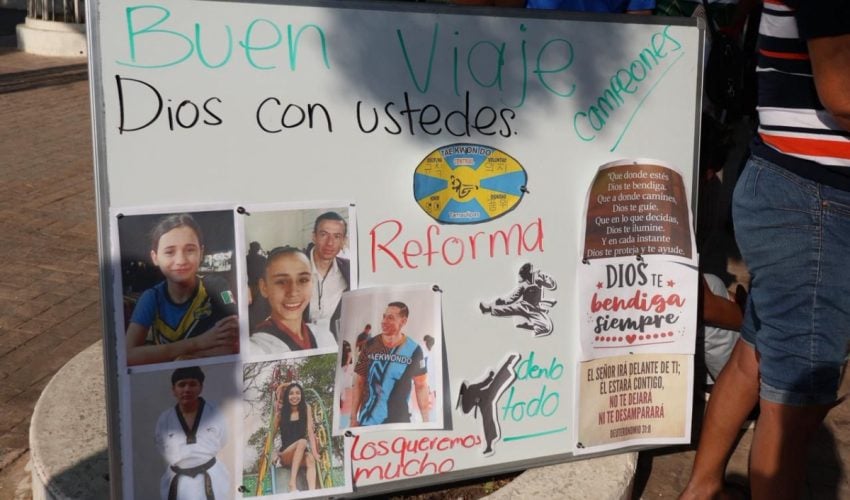 Buen Viaje
Campeones
Dios con ustedes.
TAEKWONDO
CENTRAL
Tamaulipas
Reforma
"Que donde estés
Dios te bendiga.
Que a donde camines,
Dios te guíe.
Que en lo que decidas,
Dios te ilumine.
Y en cada instante
Dios te proteja y te ayude.
DIOS TE
bendiga
siempre
EL SEÑOR IRÁ DELANTE DE TI;
ÉL ESTARÁ CONTIGO,
NO TE DEJARÁ
NI TE DESAMPARARÁ
DEUTERONOMIO 31:8
TAEKWONDO
denlo
todo
Los queremos
mucho